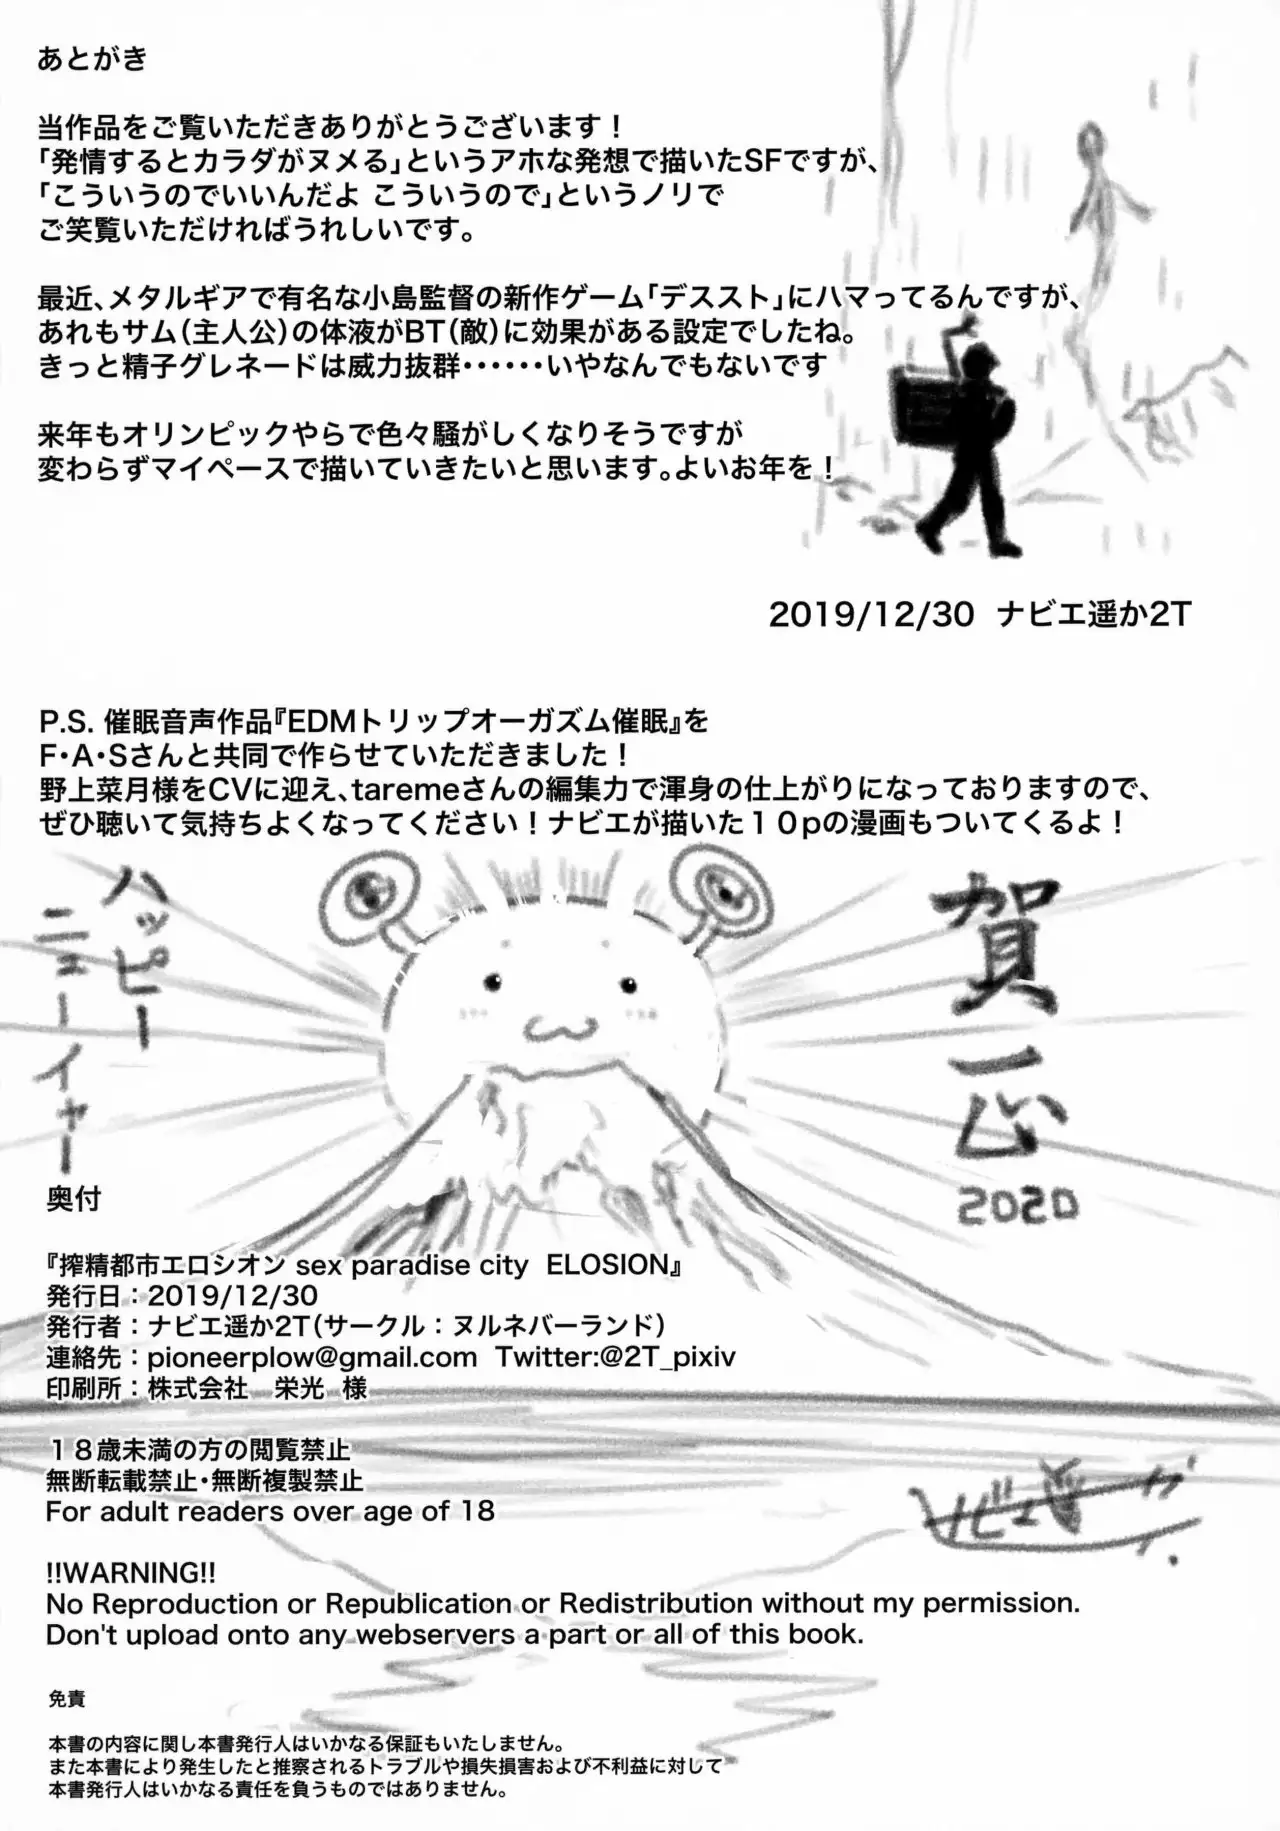 あとがき
当作品をご覧いただきありがとうございます！
「発情するとカラダがヌメる」というアホな発想で描いたSFですが、
「こういうのでいいんだよ こういうので」というノリで
ご笑覧いただければうれしいです。
最近、メタルギアで有名な小島監督の新作ゲーム「デススト」にハマってるんですが、
あれもサム（主人公）の体液がBT（敵）に効果がある設定でしたね。
きっと精子グレネードは威力抜群･･････いやなんでもないです
来年もオリンピックやらで色々騒がしくなりそうですが
変わらずマイペースで描いていきたいと思います。よいお年を！
2019/12/30 ナビエ遥か2T
P.S. 催眠音声作品『EDMトリップオーガズム催眠』を
F・A・Sさんと共同で作らせていただきました！
野上菜月様をCVに迎え、taremeさんの編集力で渾身の仕上がりになっておりますので、
ぜひ聴いて気持ちよくなってください！ナビエが描いた１０pの漫画もついてくるよ！
ハッピー
ニューイヤー
賀正
2020
奥付
『搾精都市エロシオン sex paradise city ELOSION』
発行日：2019/12/30
発行者：ナビエ遥か2T（サークル：ヌルネバーランド）
連絡先：pioneerplow@gmail.com Twitter:@2T_pixiv
印刷所：株式会社 栄光 様
１８歳未満の方の閲覧禁止
無断転載禁止・無断複製禁止
For adult readers over age of 18
ナビエ遥か
!!WARNING!!
No Reproduction or Republication or Redistribution without my permission.
Don't upload onto any webservers a part or all of this book.
免責
本書の内容に関し本書発行人はいかなる保証もいたしません。
また本書により発生したと推察されるトラブルや損失損害および不利益に対して
本書発行人はいかなる責任を負うものではありません。